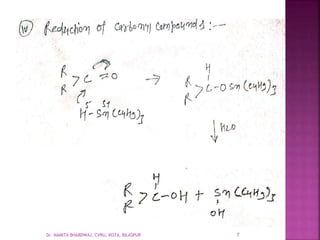 iv) Reduction of Carbonyl Compounds :-
R
R > C = O → R
R > C - O Sn(C4H9)3
H
H - Sn(C4H9)3
δ δ+
↓ H2O
H
R
R > C - OH + Sn(C4H9)3
OH
Dr. NAMRTA BHARDWAJ, CVRU, KOTA, BILASPUR 7